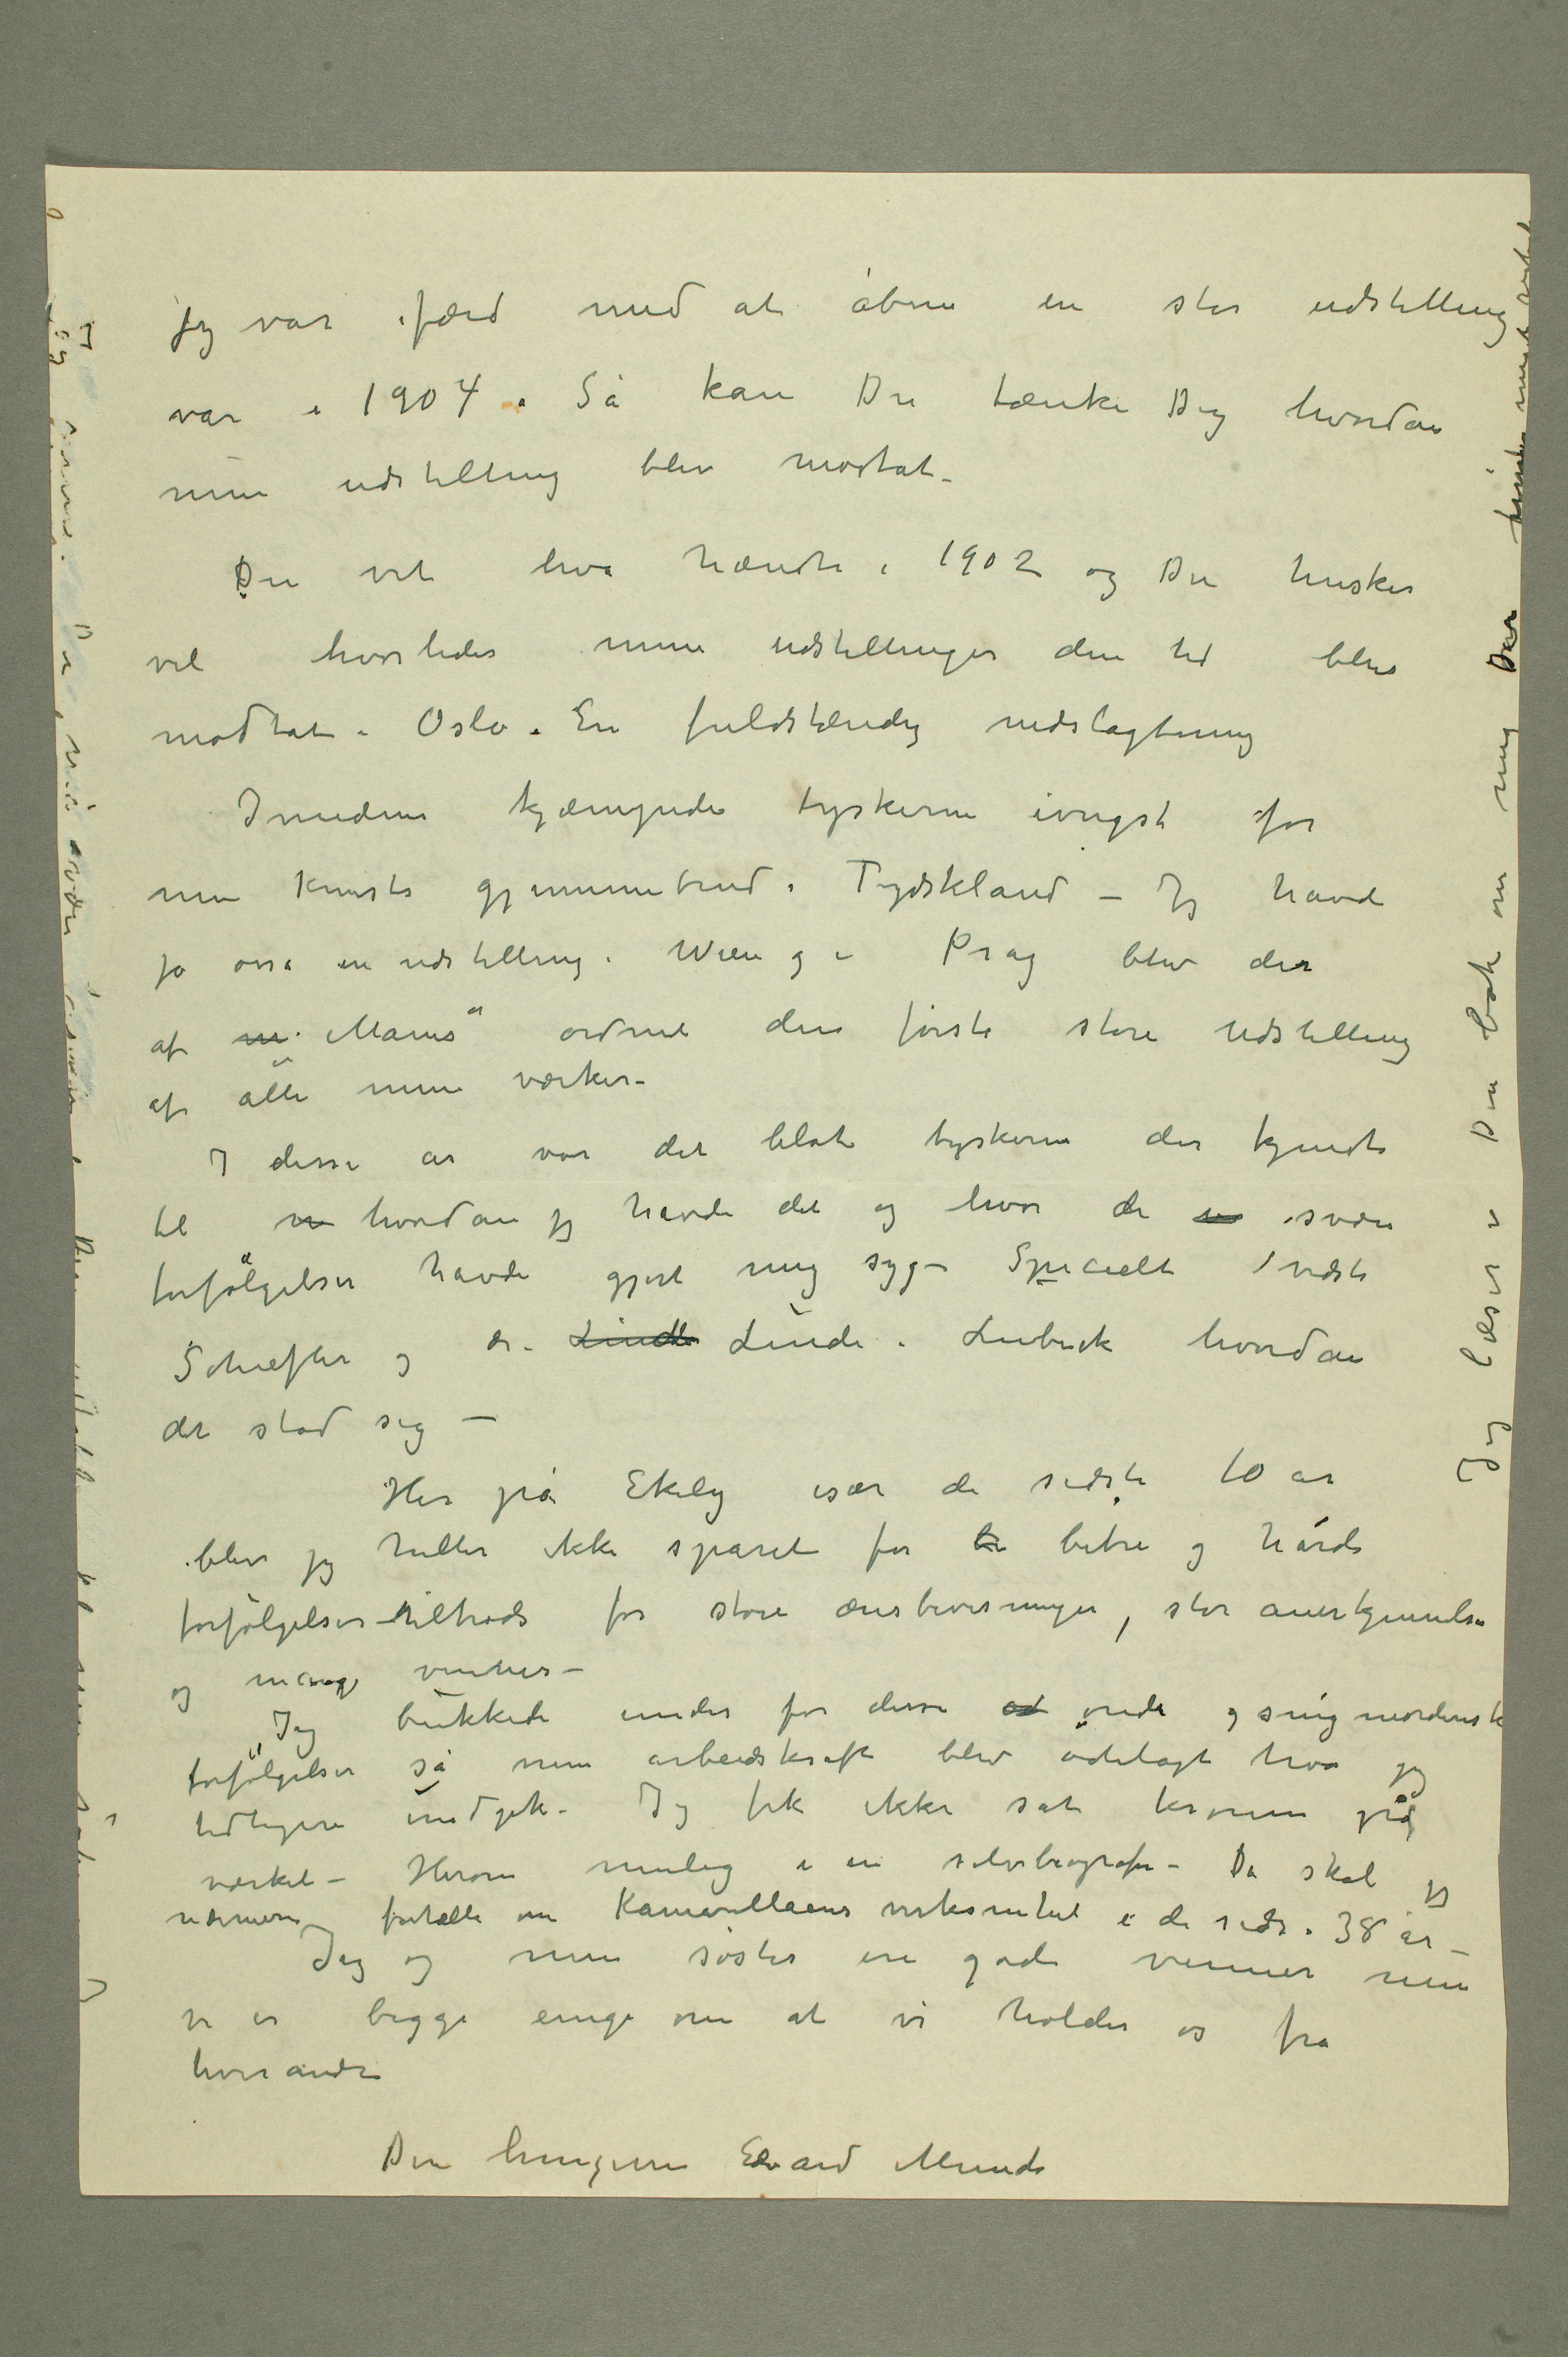 jeg var ifærd med at åbne en stor udstilling
var i 1904. Så kan Du tænke Dig hvordan
min udstilling blev mottat –
Du vet hva hændte i 1902 og Du husker
vel hvorledes mine udstillinger den tid blev
modtat i Oslo. En fuldstændig nedslagtning
Imedens kjæmpede tyskerne ivrigst for
min kunsts gjennembrud i Tydskland – Jeg havde
jo osså en udstilling i Wien og i Prag blev der
af m „Manes“ ordnet den første store udstilling
af alle mine værker –
I disse år var det blot tyskerne der kjendte
til hvordan jeg havde det og hvor de svære
forfølgelser havde gjort mig syg – Specielt vidste
Schiefler og dr. Linde Linde i Lubeck hvordan
det stod sig –
Her på Ekely især de sidste 10 år
blev jeg heller ikke sparet for bi bitre og hårde
forfølgelser tiltrods for store æresbevisninger, stor anerkjennelse
og mange venner –
Jeg bukkede under for disse od onde og snigmorderiske
forfølgelser så min arbeidskraft blev ødelagt hva jeg
tidligere undgik – Jeg fik ikke sat kronen på
værket – Herom mulig i en selvbiografi – Da skal jeg
nærmere fortælle om Kamarillaens virksomhet i de sidste 38 år –
Jeg og min søster ere gode venner men
vi er begge enige om at vi holder os fra
hverandre
Din hengivne Edvard Munch
Jeg læser i Din bok om mig